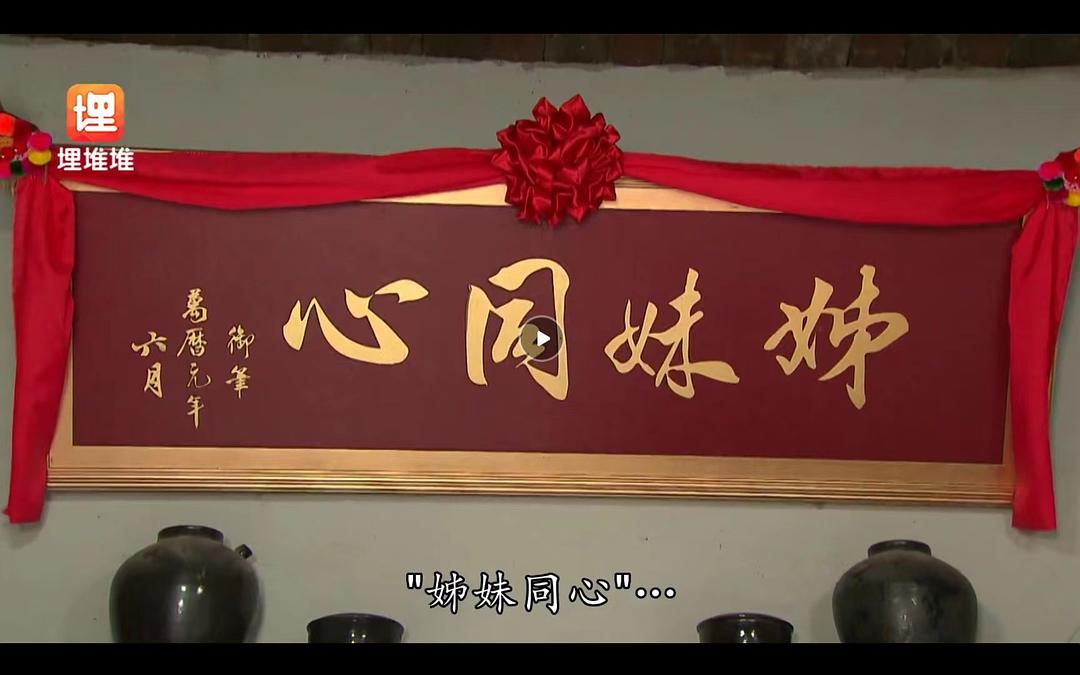 埋
埋堆堆
姊妹同心
御筆
萬曆元年
六月
"姊妹同心"…